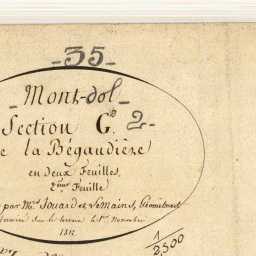 -35-
-Mont-dol-
Section G. 2-
e la Bégaudière
en deux Feuilles.
2ème Feuille
par Mrs Jouard et Lemains, Géometres
sur le terrain le 1er Novembre
1/2,500